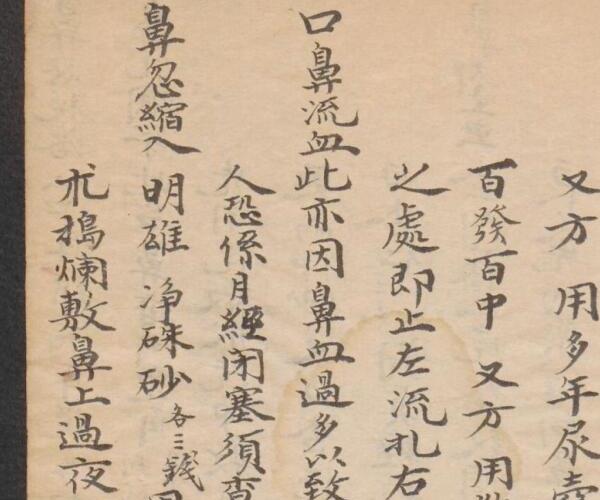 又方 用多年尿壺
百發百中 又方 用
之處即止左流扎右
口鼻流血此亦因鼻血過多以致
人恐係月經閉塞須查
鼻忽縮入 明雄 净硃砂各二錢
朮搗爛敷鼻上過夜